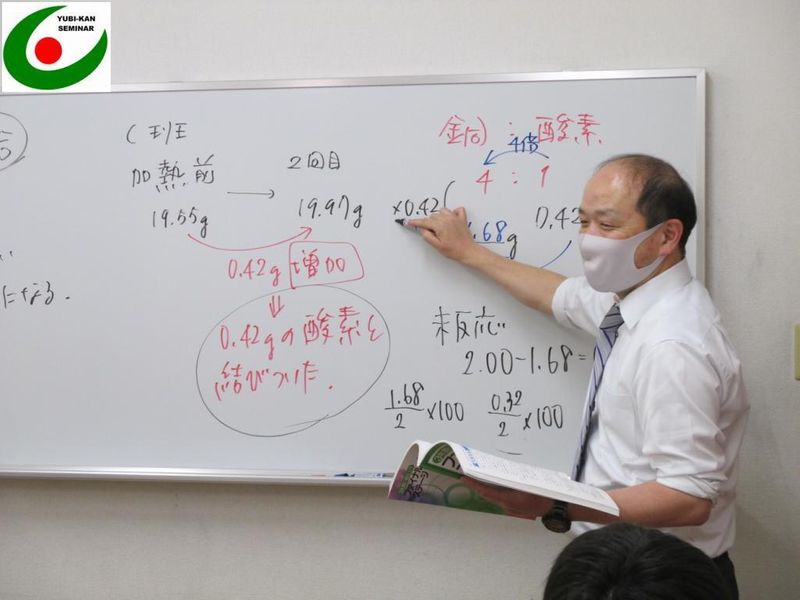 YUBI-KAN
SEMINAR
C班
加熱前
2回目
19.55g
19.97g
0.42g 増加
0.42gの酸素と
結びついた.
になる.
×0.42
銅 : 酸素
4倍
4 : 1
1.68g
0.42
未反応
2.00-1.68=
1.68/2 ×100
0.32/2 ×100